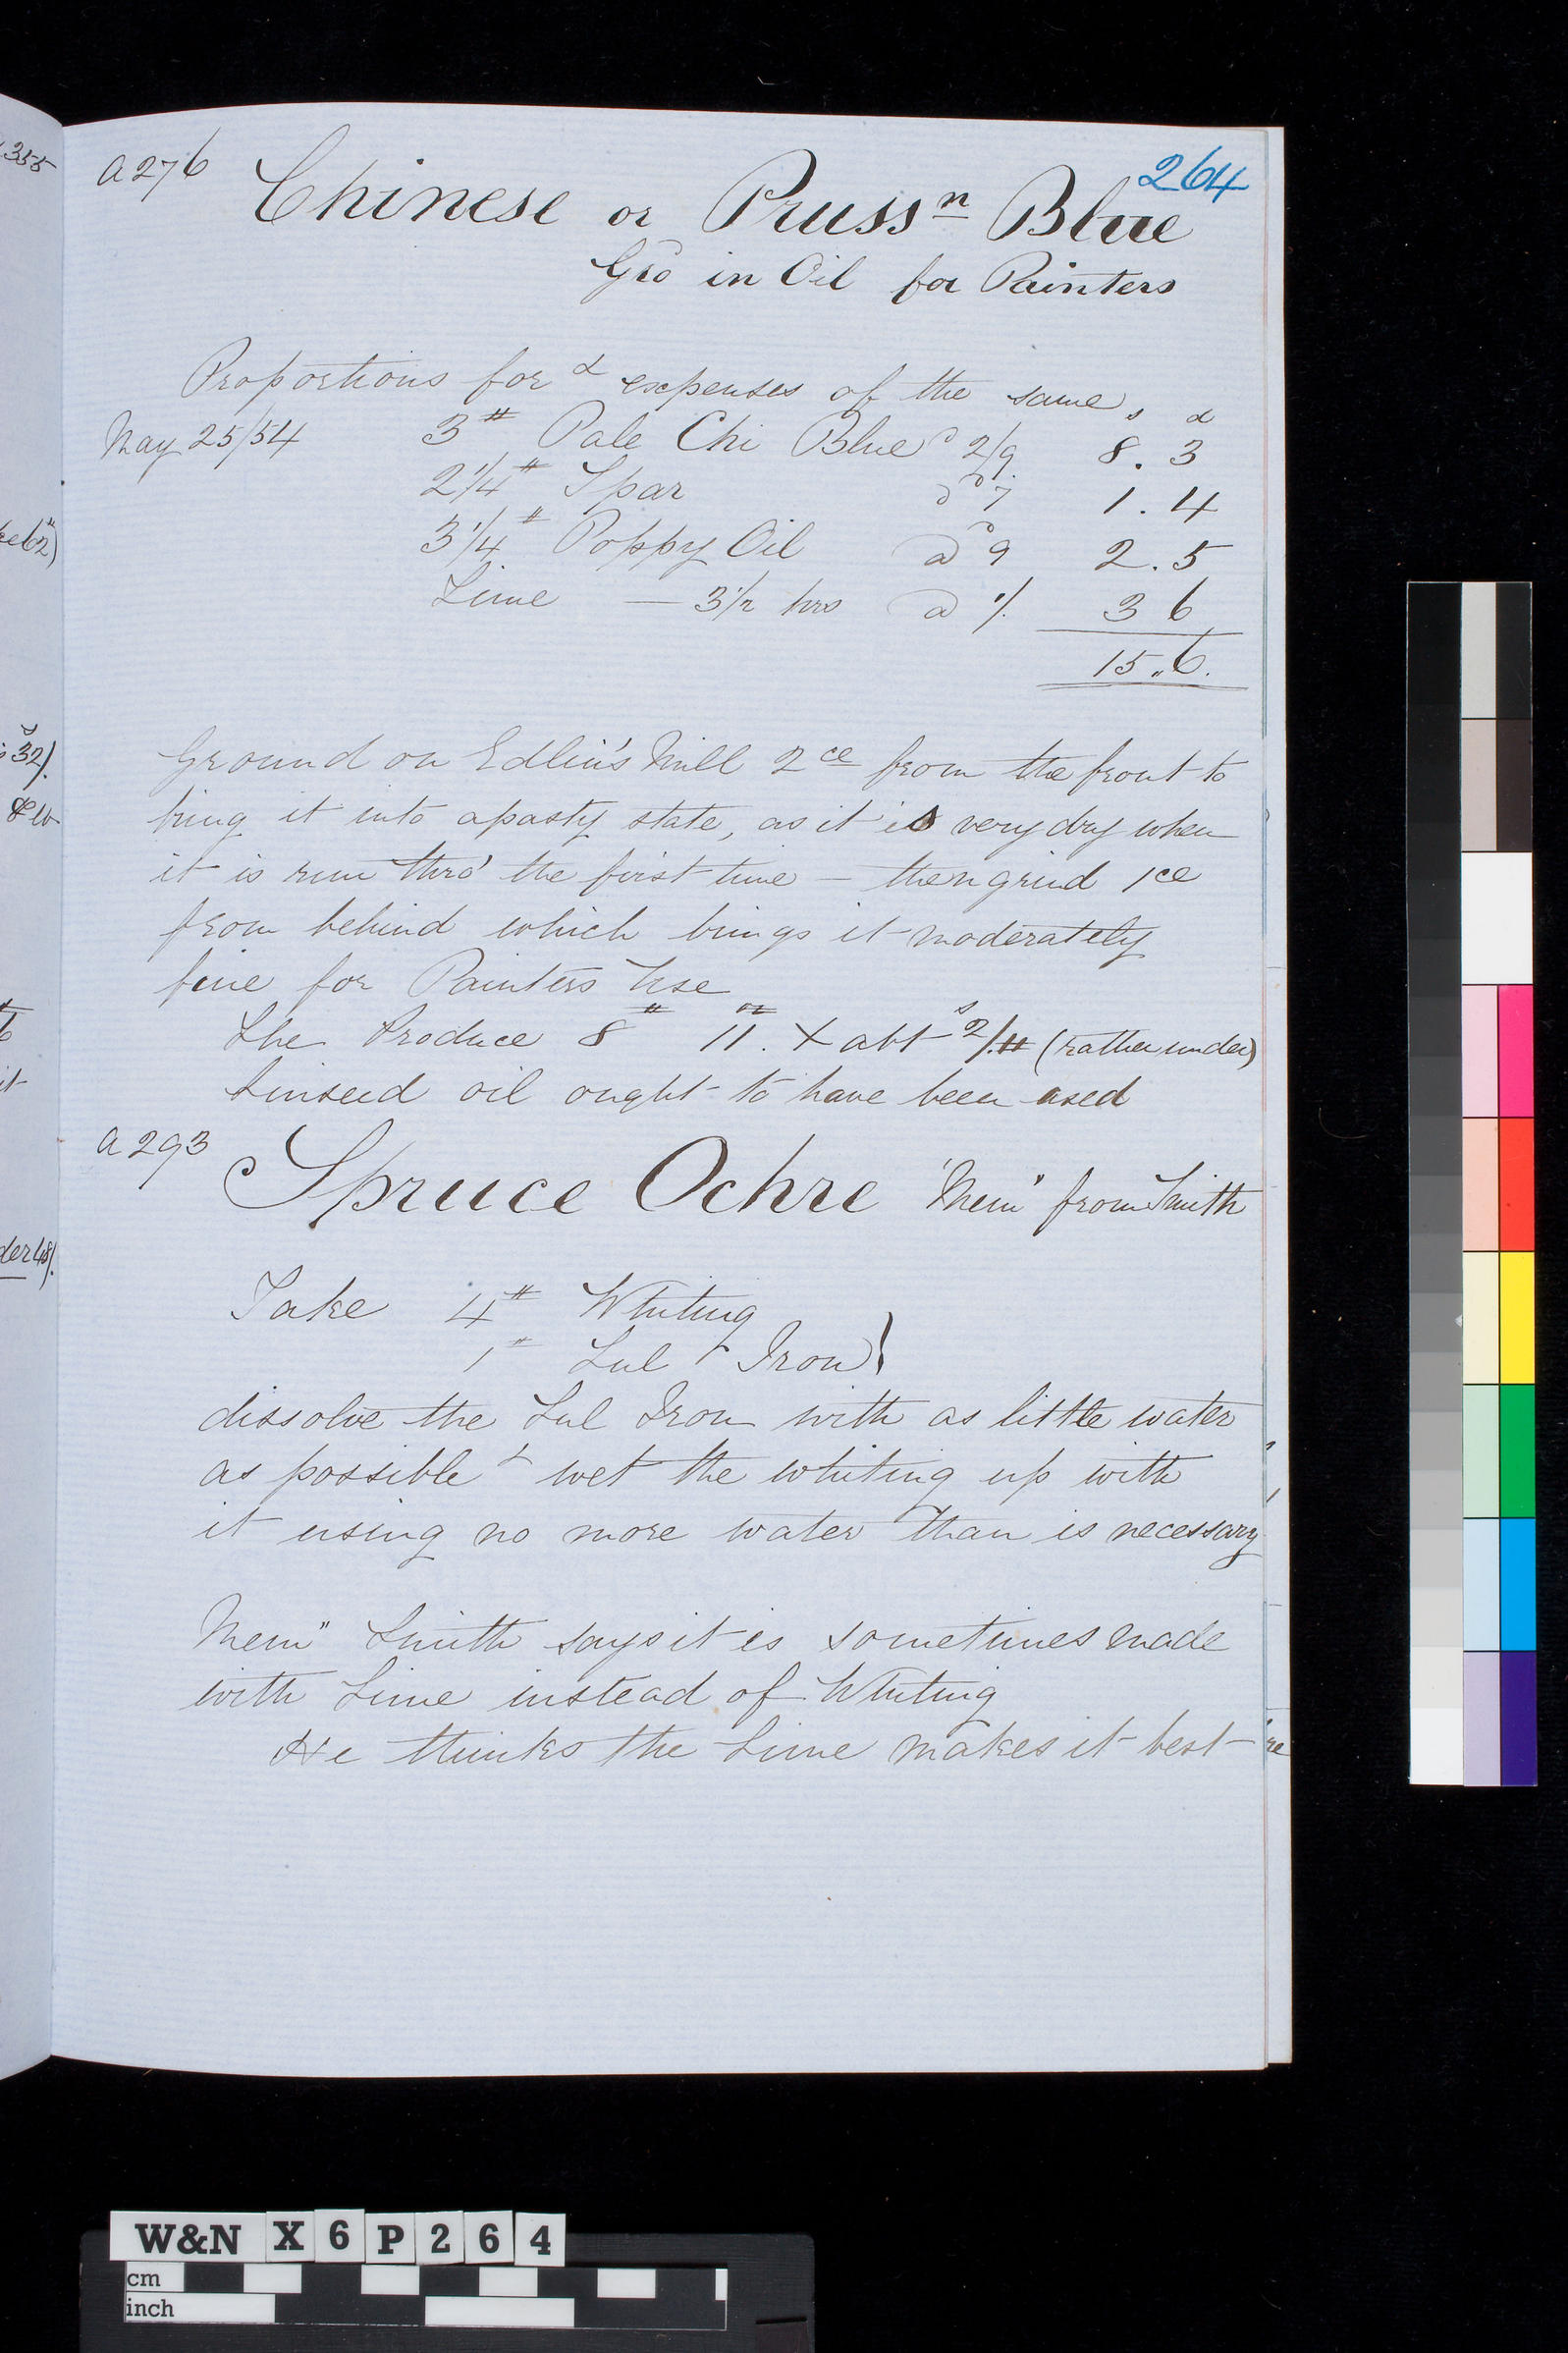 355
264
a 276
Chinese or Prussn Blue
Gro in Oil for Painters
Proportions for & expenses of the same
s d
May 25/54 3# Pale Chi Blue @ 2/9 8.3
2 1/4# Spar @ 7 1.4
3 1/4# Poppy Oil @ 9 2.5
Time — 3 1/2 hrs @ 1/. 3 6
15„6.
Ground on Edlin's Mill 2ce from the front to
bring it into a pasty state, as it is very dry when
it is run thro' the first time — then grind 1ce
from behind which brings it moderately
fine for Painters Use
The Produce 8# 11oz. X abt s 2/.# (rather under)
Linseed oil ought to have been used
a 293
Spruce Ochre "Mem" from Smith
Take 4# Whiting
1# Sul Iron}
dissolve the Sul Iron with as little water
as possible & wet the whiting up with
it using no more water than is necessary
Mem" Smith says it is sometimes made
with Lime instead of Whiting
He thinks the Lime makes it best—
W&N X6P264
cm
inch